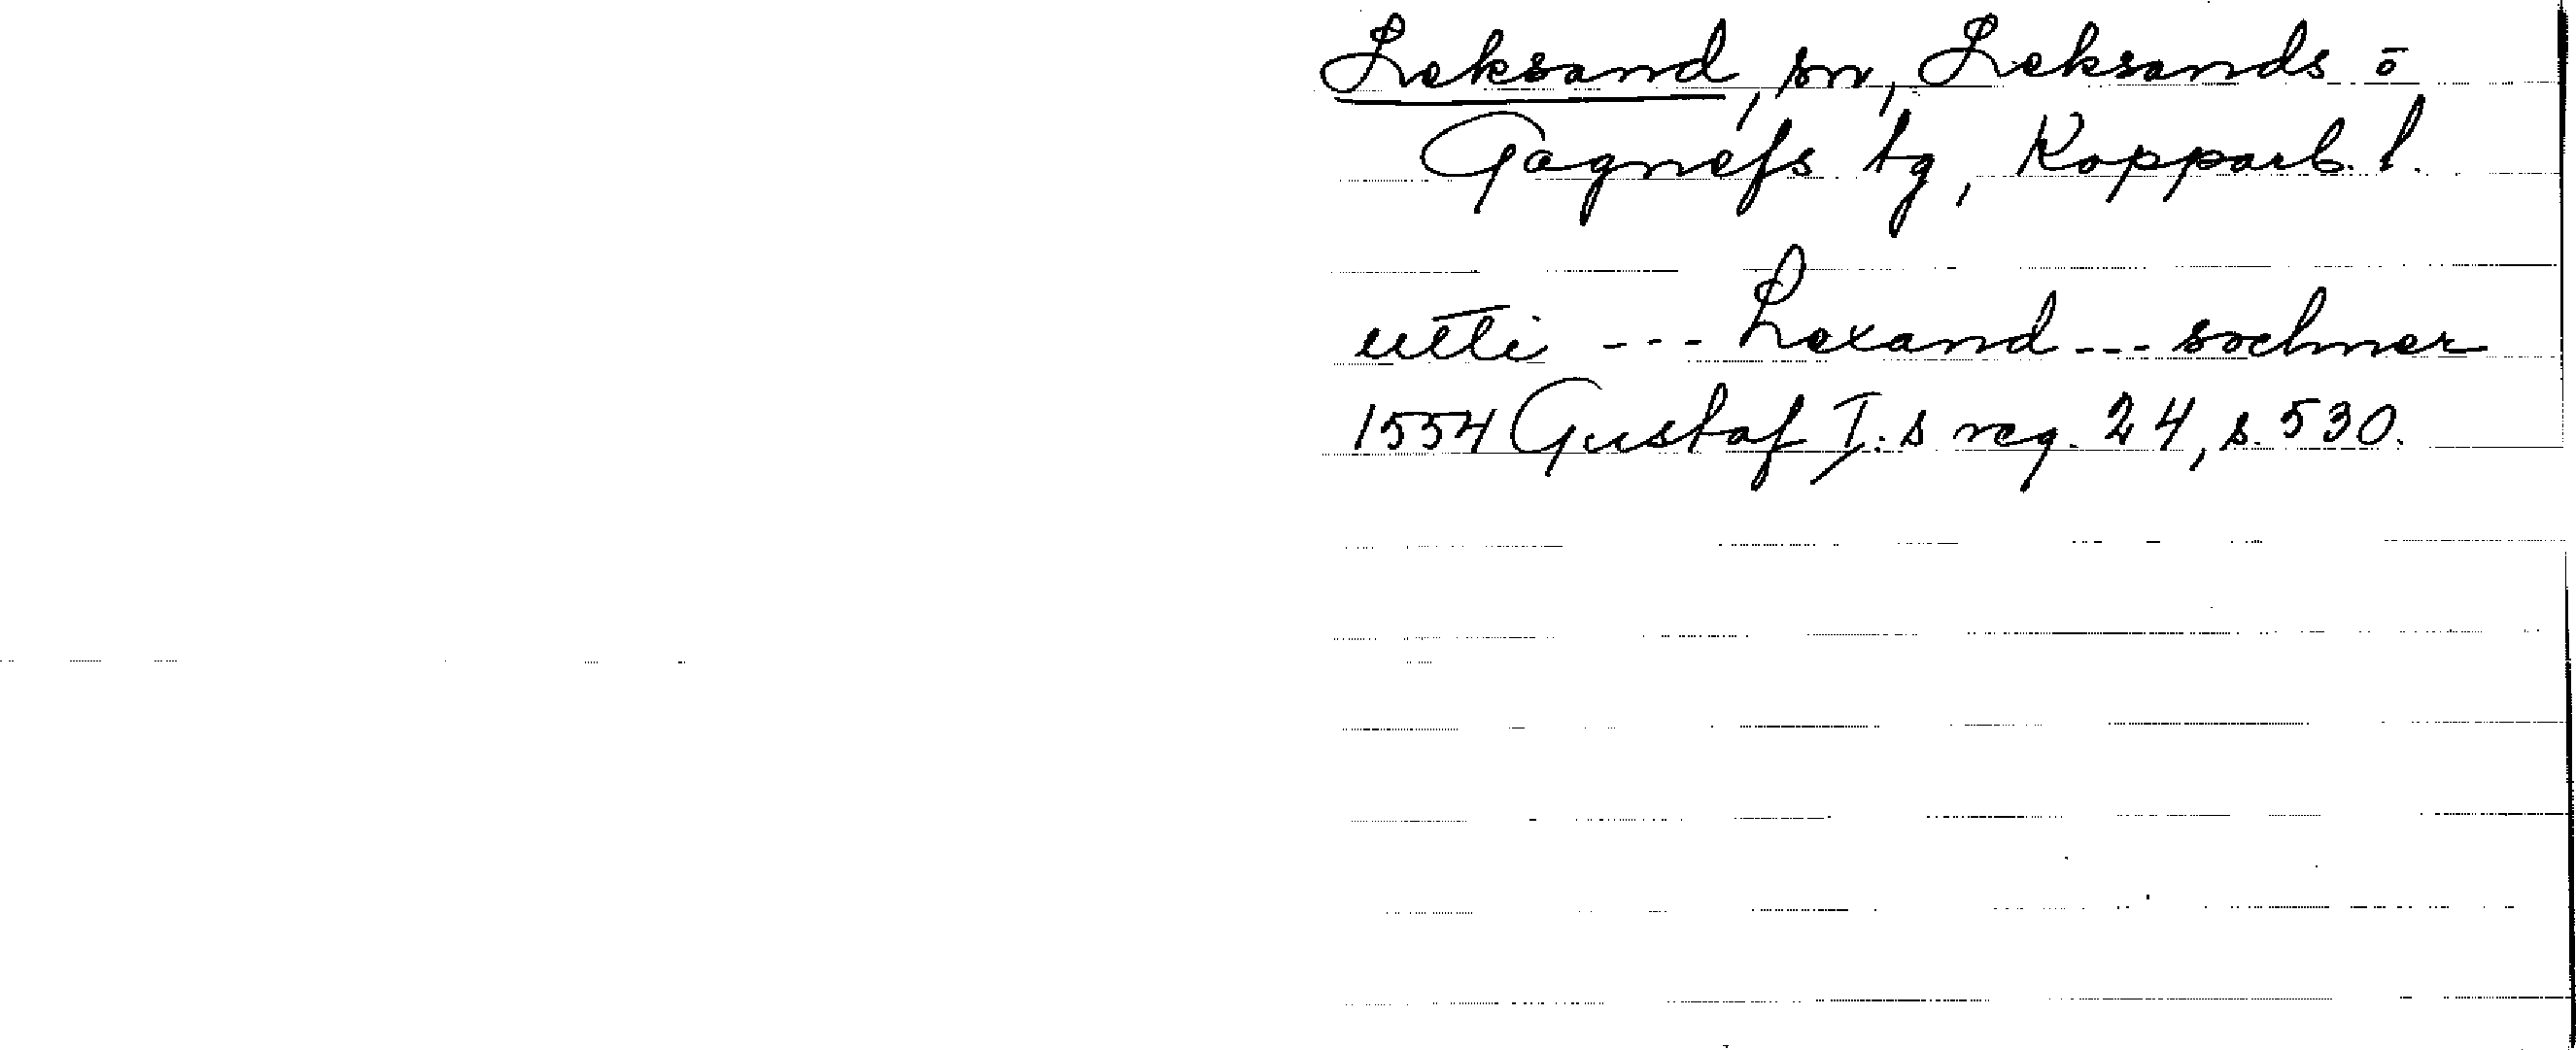 Leksand, sn, Leksands o
Gagnefs tg, Kopparb. l.
utti --- Lexand --- sochner
1554 Gustaf I:s reg. 24, s. 530.